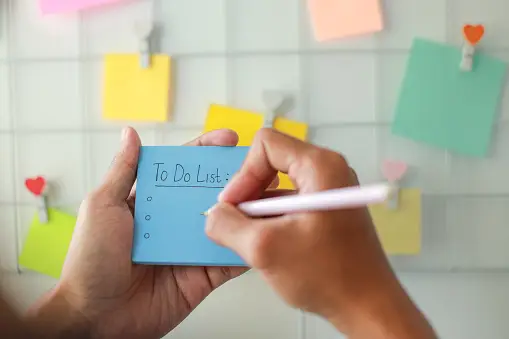 To Do List :